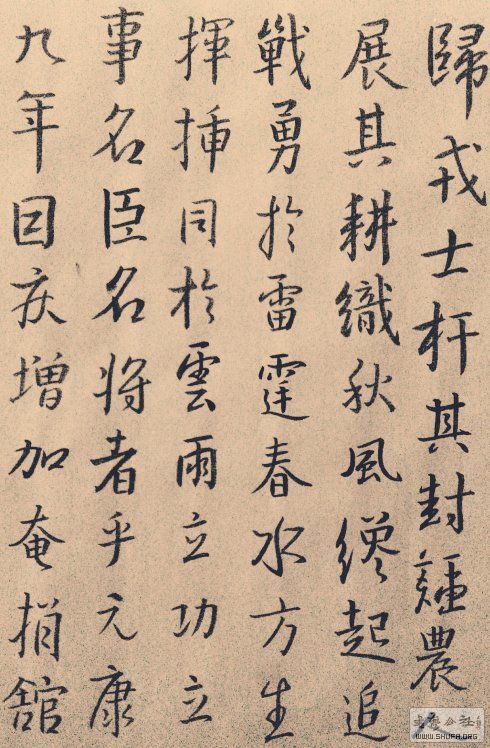 歸戎士扞其封疆農
展其耕織秋風纔起追
戰勇於雷霆春水方生
揮插同於雲雨立功立
事名臣名將者乎元康
九年因疾增加奄捐舘
WWW.SHUFA.ORG